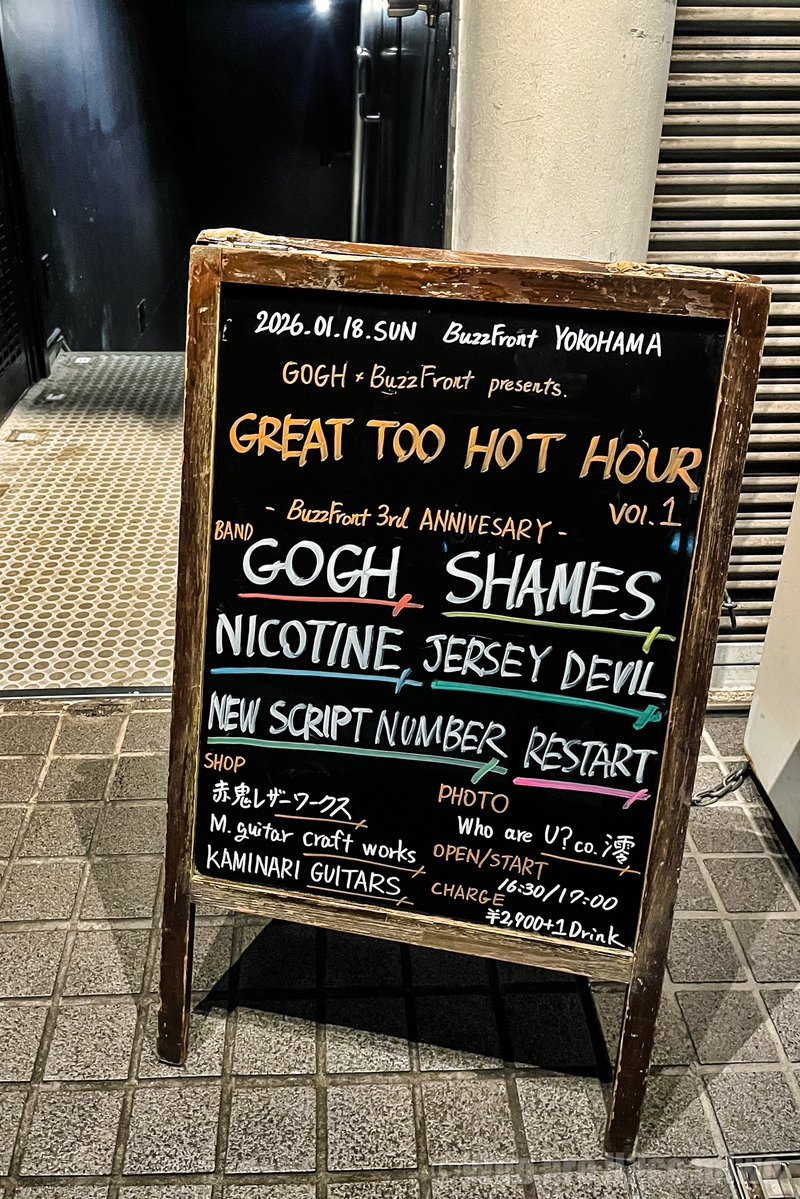 2026.01.18.SUN BuzzFront YOKOHAMA
GOGH × BuzzFront presents.
GREAT TOO HOT HOUR
VOl.1
- BuzzFront 3rd ANNIVESARY -
BAND
GOGH SHAMES
NICOTINE JERSEY DEVIL
NEW SCRIPT NUMBER RESTART
SHOP
赤鬼レザーワークス
M.guitar craft works
KAMINARI GUITARS
PHOTO
Who are U?co. 澪
OPEN/START
16:30/17:00
CHARGE
¥2,900+1Drink